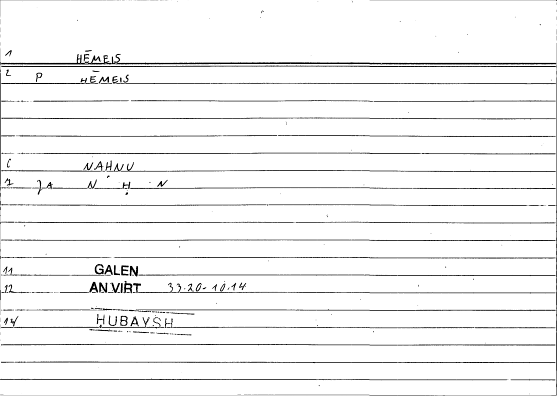 1 HĒMEIS
2 P HĒMEIS
6 NAHNU
7 JA N Ḥ N
11 GALEN
12 AN VIRT 33.20-10.14
14 ḤUBAYSH